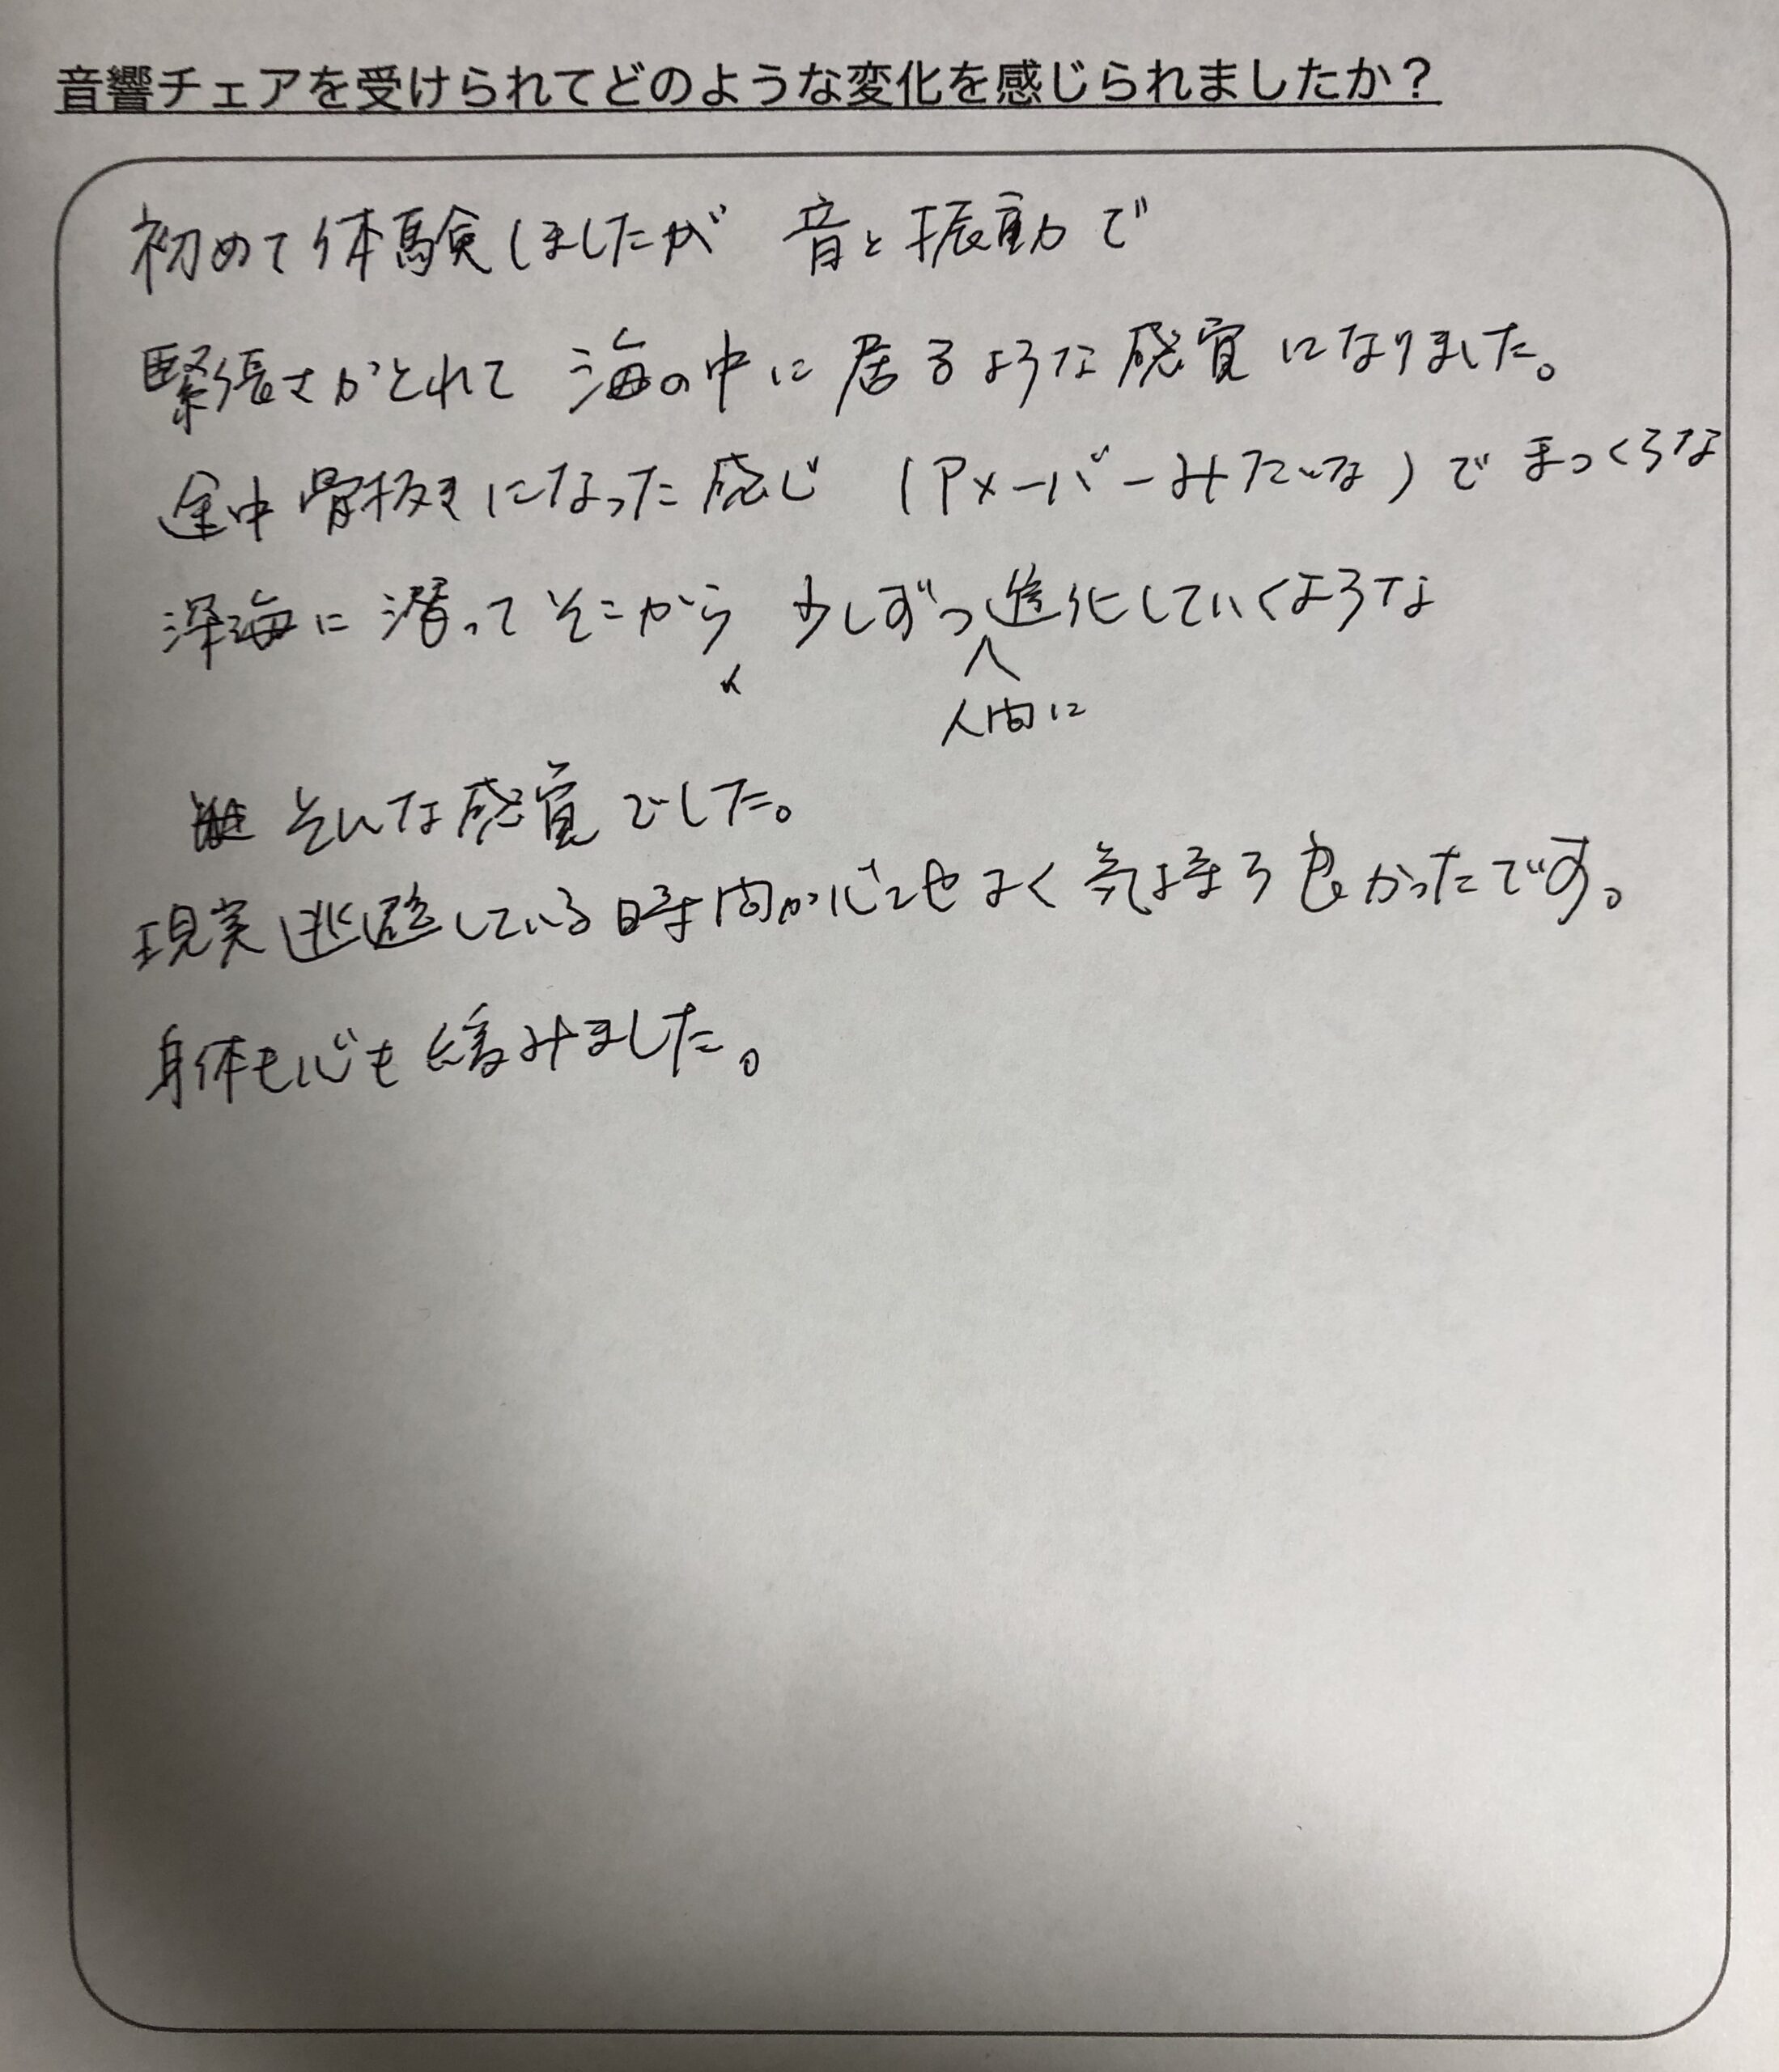 音響チェアを受けられてどのような変化を感じられましたか？
初めて体験しましたが 音と振動で
緊張さがとれて 海の中に居るような感覚になりました。
途中骨抜きになった感じ (アメーバーみたいな)でまっくらな
深海に潜ってそこから 少しずつ進化していくような
人間に
そんな感覚でした。
現実逃避している時間が心地よく気持ち良かったです。
身体も心も緩みました。